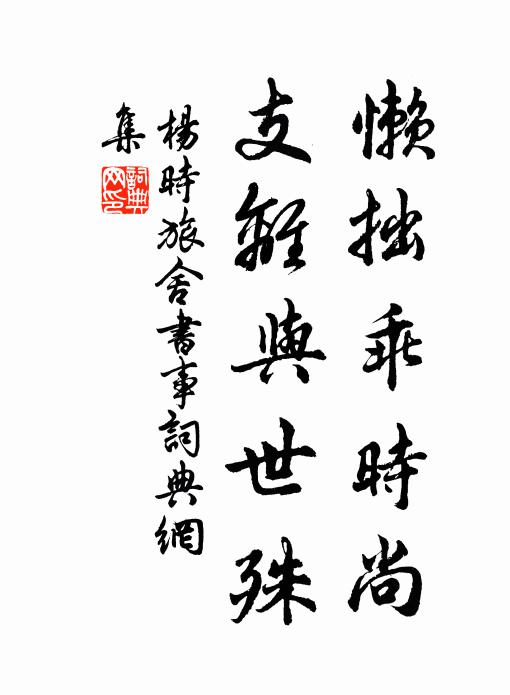 懶拙乖時尚
支離與世殊
楊時旅舍書事詞典網
集
詞典网印